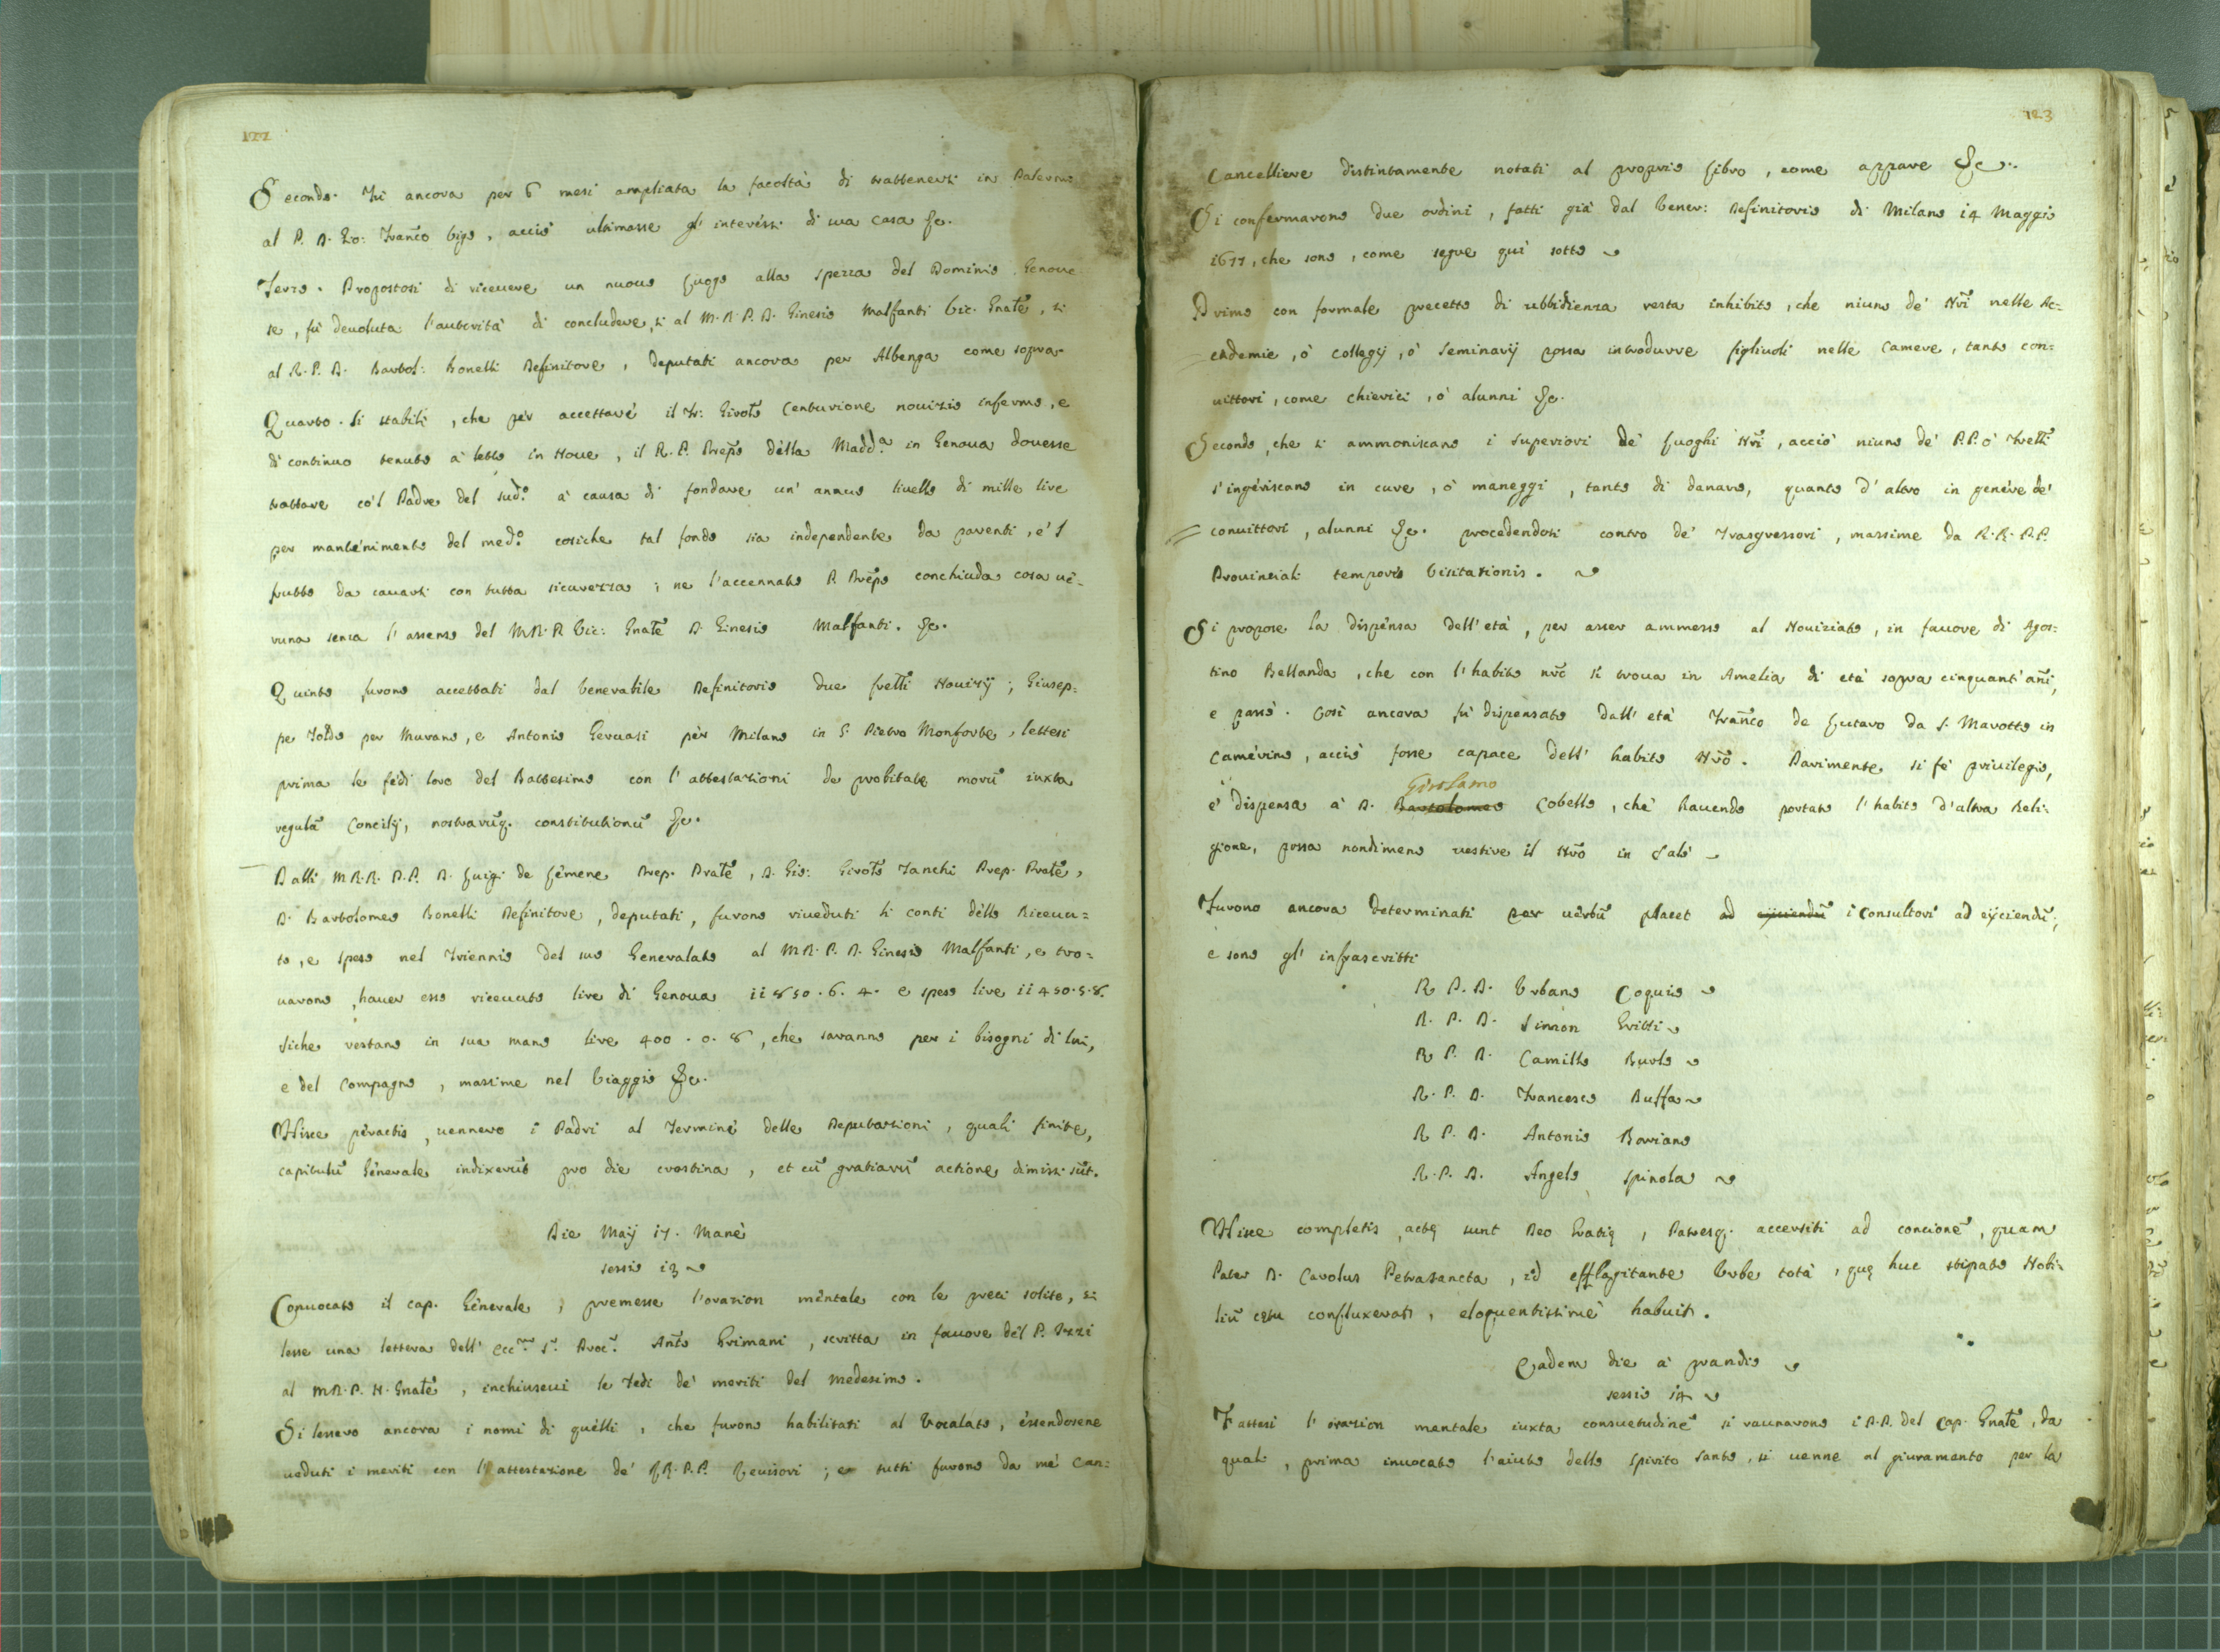 122
Secondo. Fu ancora per 6 mesi ampliata la facoltà di trattenersi in Palermo
al P. D. Gio: Fran͠co Vigo, acciò ultimasse gl'interessi di sua casa &c.
Terzo. Propostosi di riceuere un nuouo luogo alla Spezza del Dominio Genoue
se, fù deuoluta l'autorità di concludere, si al M.R.P.D. Ginesio Malfanti Vic. Gnãle, si
al R.P.D. Bartol: Bonelli Definitore, deputati ancora per Albenga come sopra.
Quarto. Si stabilì, che per accettare il Fr: Girolõ Centurione nouizio infermo, e
di continuo tenuto à letto in Noue, il R.P. Prep̃o della Madd.ª in Genoua douesse
trattare co'l Padre del sud.º à causa di fondare un' annuo liuello di mille lire
per mantenimento del med.º cosiche tal fondo sia independente da parenti, e'l
frutto da cauarsi con tutta sicurezza; ne l'accennato P. Prep̃o conchiuda cosa ue-
runa senza l'assenso del M.R.P. Vic: Gnãle D. Ginesio Malfanti. &c.
Quinto furono accettati dal Venerabile Definitorio due frẽlli Nouizij; Giusep=
pe Toldo per Murano, e Antonio Geruasi per Milano in S. Pietro Monforte, lettesi
prima le fedi loro del Battesimo con l'attestationi de probitate morũ iuxta
regulã Concilij, nostrarũq. constitutionũ &c.
Dalli M.R.R. P.P. D. Luigi de Lemene Prep. Prãle, D. Gio: Girolõ Zanchi Prep. Prãle,
D. Bartolomeo Bonelli Definitore, deputati, furono riueduti li conti dello Riceuu=
to, e speso nel Triennio del suo Generalato al M.R.P.D. Ginesio Malfanti, e tro=
uarono, hauer esso riceuuto lire di Genoua ii850.6.4. e speso lire ii450.5.8.
Siche restano in sua mano lire 400.0.8, che saranno per i bisogni di lui,
e del Compagno, massime nel Viaggio &c.
Hisce peractis, uennero i Padri al Termine delle Deputationi, quali finite,
capitulũ Generale indixerũt pro die crastina, et cũ gratiarũ actione dimissi sũt.
Die Maij 17. Manè
sessio 13
Conuocato il cap. Generale, premesse l'orazion mentale con le preci solite, si
lesse una lettera dell' Ecc.mo S.r Proc.r Antõ Grimani, scritta in fauore del P. Uzzi
al M.R.P.N. Gnãle, inchiuseui le Fedi de' meriti del medesimo.
Si lessero ancora i nomi di quelli, che furono habilitati al Vocalato, essendosene
ueduti i meriti con l'attestazione de' R.R.P.P. Reuisori; e tutti furono da mè Can:
123
Cancelliere distintamente notati al proprio libro, come appare &c.
Si confermarono due ordini, fatti già dal Vener: Definitorio di Milano i4 Maggio
1677, che sono, come segue quì sotto
Primo con formale precetto di ubbidienza resta inhibito, che niuno de' Nr̃i nelle Ac=
cademie, ò Collegij, ò Seminarij possa introdurre figliuoli nelle Camere, tanto con:
uittori, come chierici, ò alunni &c.
Secondo, che si ammoniscano i Superiori de' luoghi Nr̃i, acciò niuno de' P.P. ò Frẽlli
s'ingeriscano in cure, ò maneggi, tanto di danaro, quanto d'altro in genere de'
conuittori, alunni &c. procedendosi contro de' Trasgressori, massime da R.R.P.P.
Prouinciali tempore Visitationis.
Si propose la dispensa dell'età, per esser ammesso al Nouiziato, in fauore di Agos:
tino Bellanda, che con l'habito nr̃õ si troua in Amelia di età sopra cinquant'añi,
e passò. Così ancora fù dispensato dall' età Fran͠co de Lutaro da S. Marotto in
Camerino, acciò fosse capace dell' habito Nr̃õ. Parimente si fè priuilegio,
Girolamo
e' dispensa à D. Bartolomeo Cobello, che hauendo portato l'habito d'altra Reli:
gione, possa nondimeno uestire il Nr̃õ in Salò
Furono ancora determinati per uerbũ placet ad eijciendũ i Consultori ad eijciendũ;
e sono gl' infrascritti
R. P. D. Vrbano Coquio
R. P. D. Simon Gritti
R. P. D. Camillo Burlo
R. P. D. Francesco Buffa
R. P. D. Antonio Borriano
R. P. D. Angelo Spinola
Hisce completis, actę sunt Deo Gratię, Patresq. accersiti ad concionẽ, quam
Pater D. Carolus Petrasancta, id efflagitante Vrbe totà, quę huc stipato Nobi:
liũ cętu confluxerat, eloquentissimè habuit.
Eadem die à prandio
sessio 14
Fattasi l'orazion mentale iuxta consuetudinẽ si raunarono i P.P. del Cap. Gnãle, da
quali, prima inuocato l'aiuto dello Spirito Santo, si uenne al giuramento per la